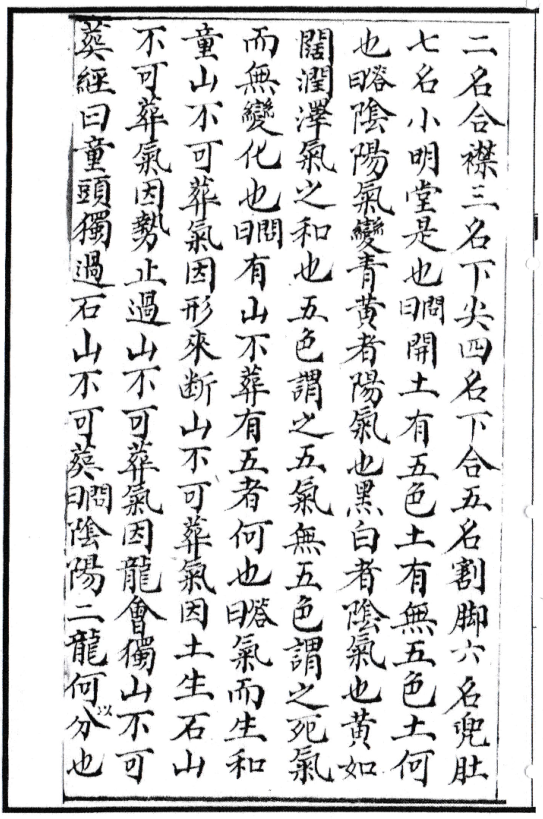 二名合襟三名下尖四名下合五名割脚六名兜肚
七名小明堂是也問曰開土有五色土有無五色土何
也答曰陰陽氣變青黄者陽氣也黑白者陰氣也黄如
闊潤澤氣之和也五色謂之五氣無五色謂之死氣
而無變化也問曰有山不葬有五者何也答曰氣而生和
童山不可葬氣因形來断山不可葬氣因土生石山
不可葬氣因勢止過山不可葬氣因龍會獨山不可
葬經曰童頭獨過石山不可葬問曰陰陽二龍何以分也